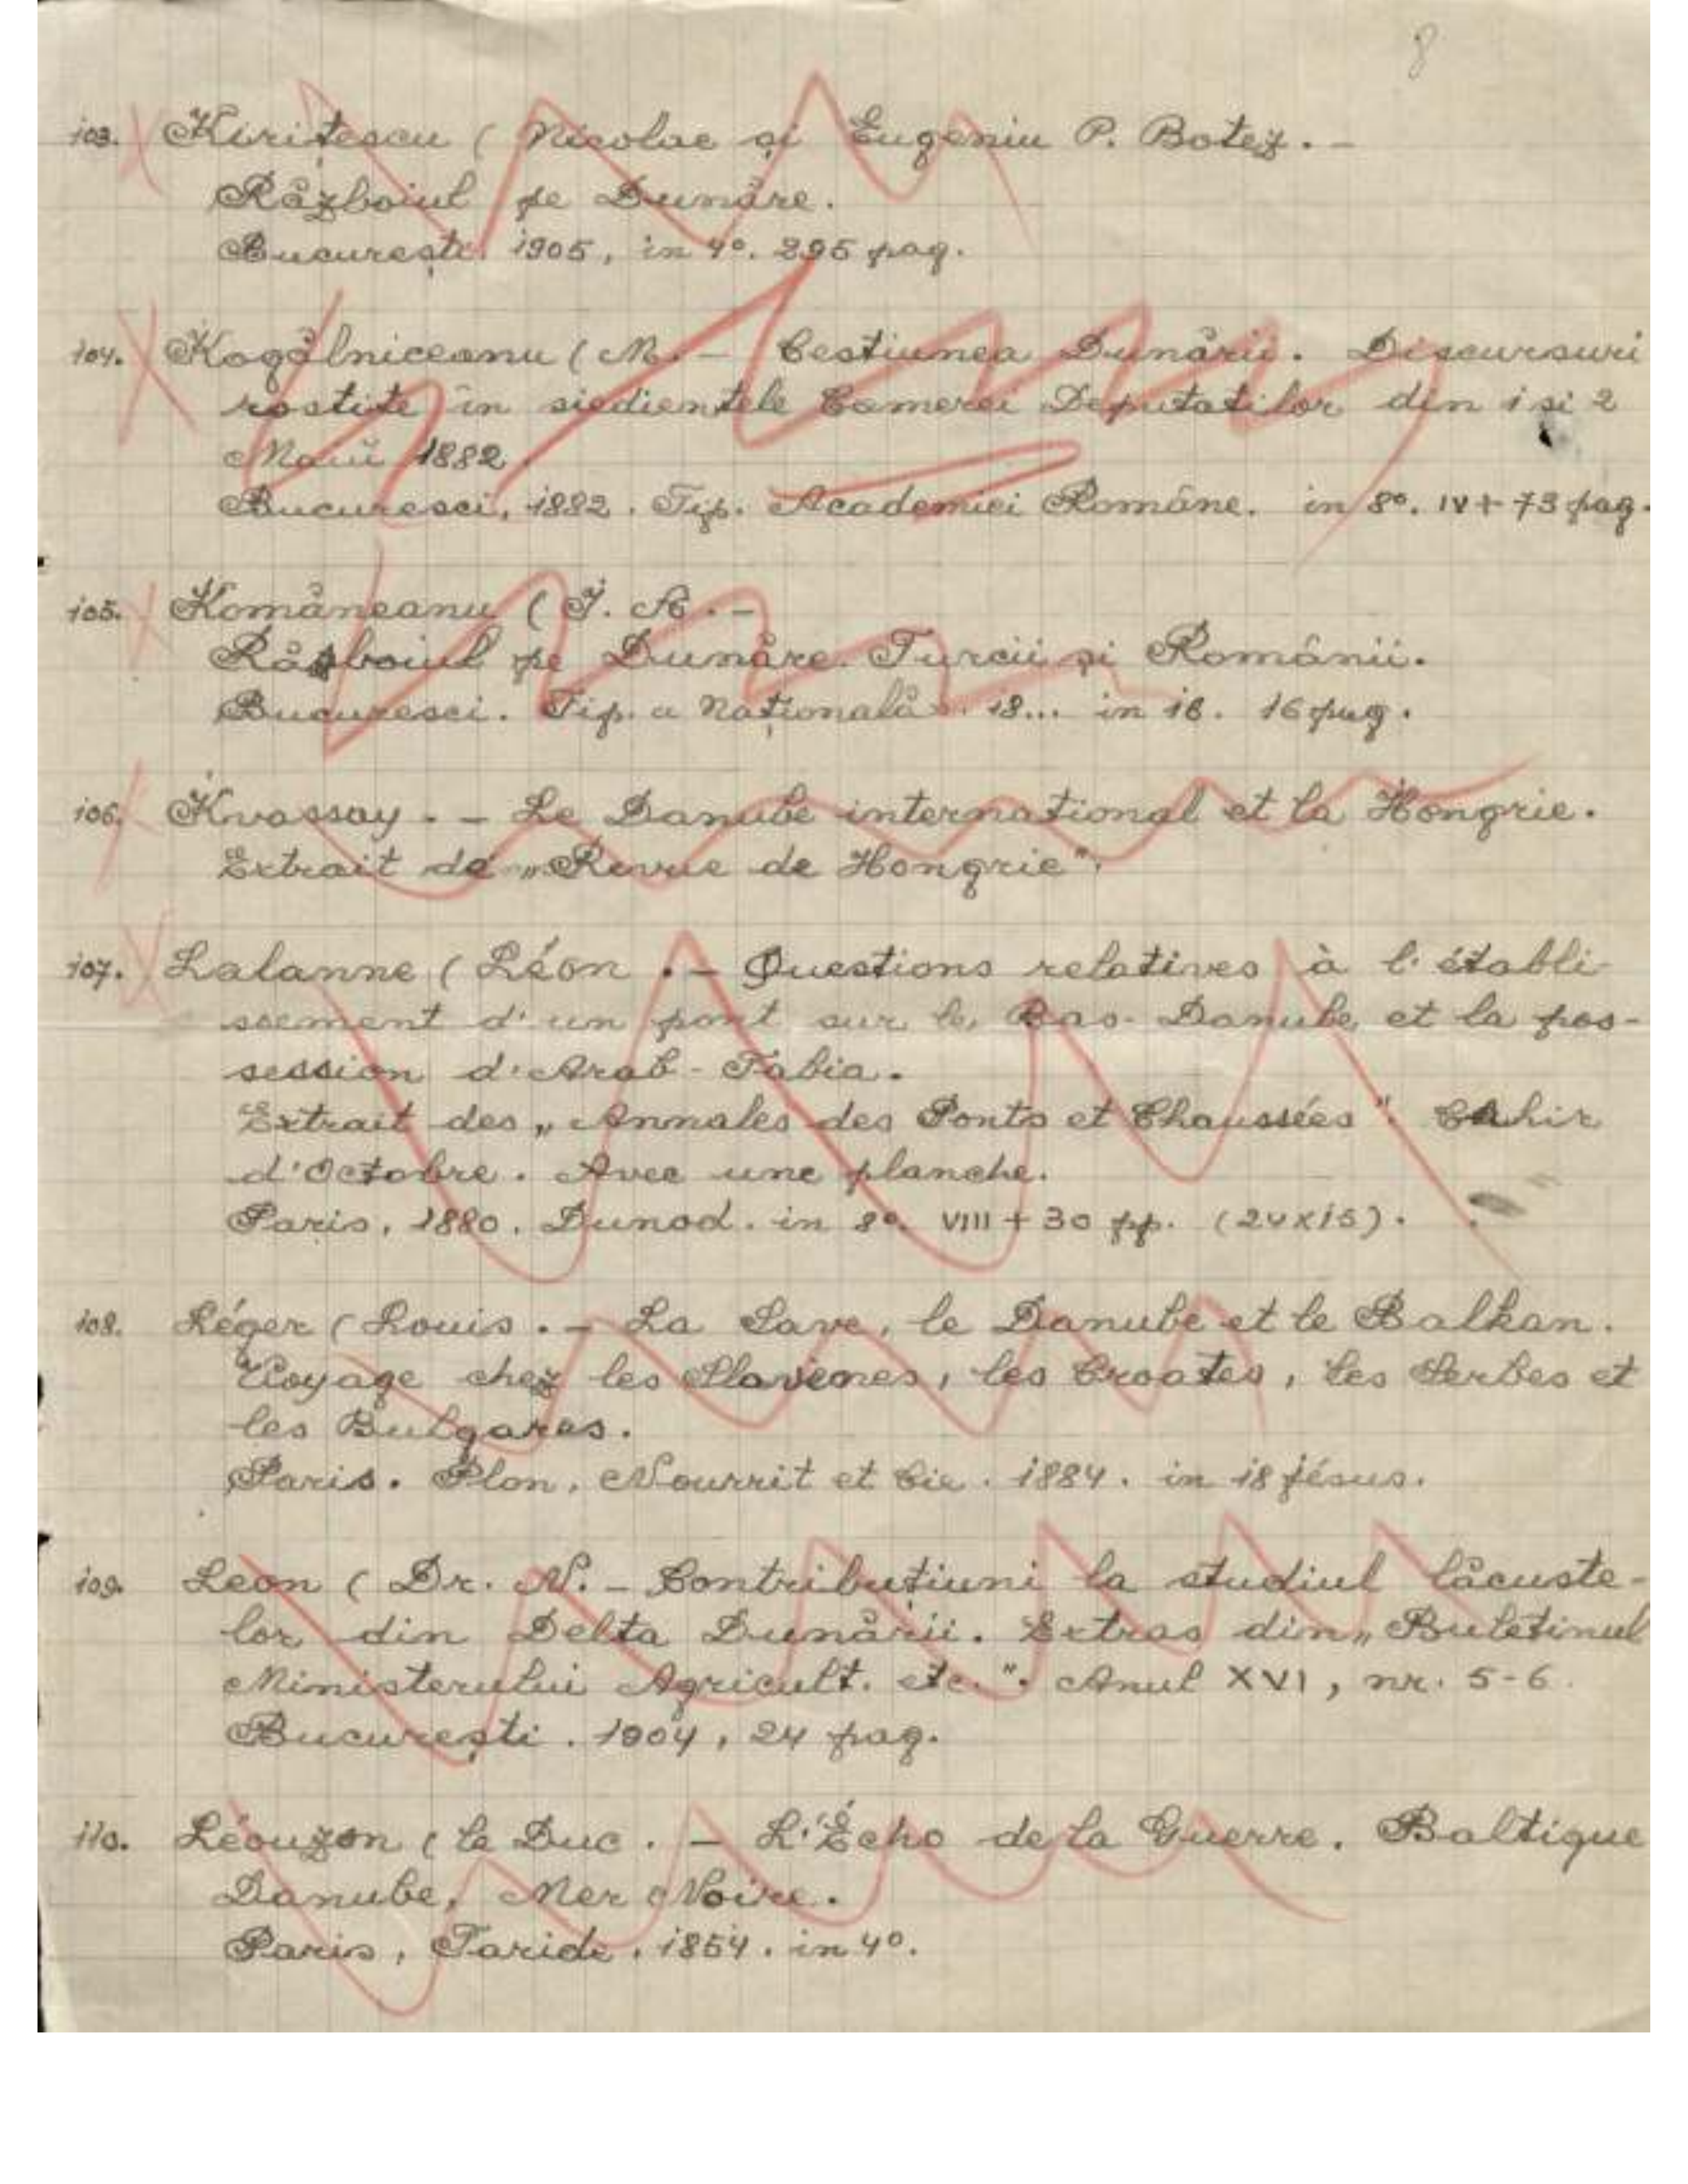 8
103. Kirițescu ( Nicolae și Eugeniu P. Botez. -
Războiul pe Dunăre.
București 1905, in 4º. 295 pag.
104. Kogălniceanu ( M. - Cestiunea Dunării. Discursuri
rostite în siedientele Camerei Deputatilor din 1 si 2
Maiŭ 1882.
Bucuresci, 1882. Tip. Academiei Române. in 8º. IV + 73 pag.
105. Komăneanu ( I. A. -
Răsboiul pe Dunăre. Turcii și Românii.
Bucuresci. Tip. a Națională. 18... in 16. 16 pag.
106. Kvassay. - Le Danube international et la Hongrie.
Extrait de „Revue de Hongrie".
107. Lalanne ( Léon. - Questions relatives à l'établi-
ssement d'un pont sur le Bas-Danube et la pos-
session d'Arab-Tabia.
Extrait des „Annales des Ponts et Chaussées". Cahir
d'Octobre. Avec une planche.
Paris, 1880. Dunod. in 8º. VIII + 30 pp. (24x15).
108. Léger ( Louis. - La Save, le Danube et le Balkan.
Voyage chez les Slavènes, les Croates, les Serbes et
les Bulgares.
Paris. Plon, Nourrit et Cie. 1884. in 18 jésus.
109. Leon ( Dr. N. - Contribuțiuni la studiul lăcuste-
lor din Delta Dunării. Extras din „Buletinul
Ministerului Agricult. etc.". Anul XVI, nr. 5-6.
București. 1904, 24 pag.
110. Léouzon ( le Duc. - L'Écho de la Guerre. Baltique
Danube, Mer Noire.
Paris, Taride. 1854. in 4º.